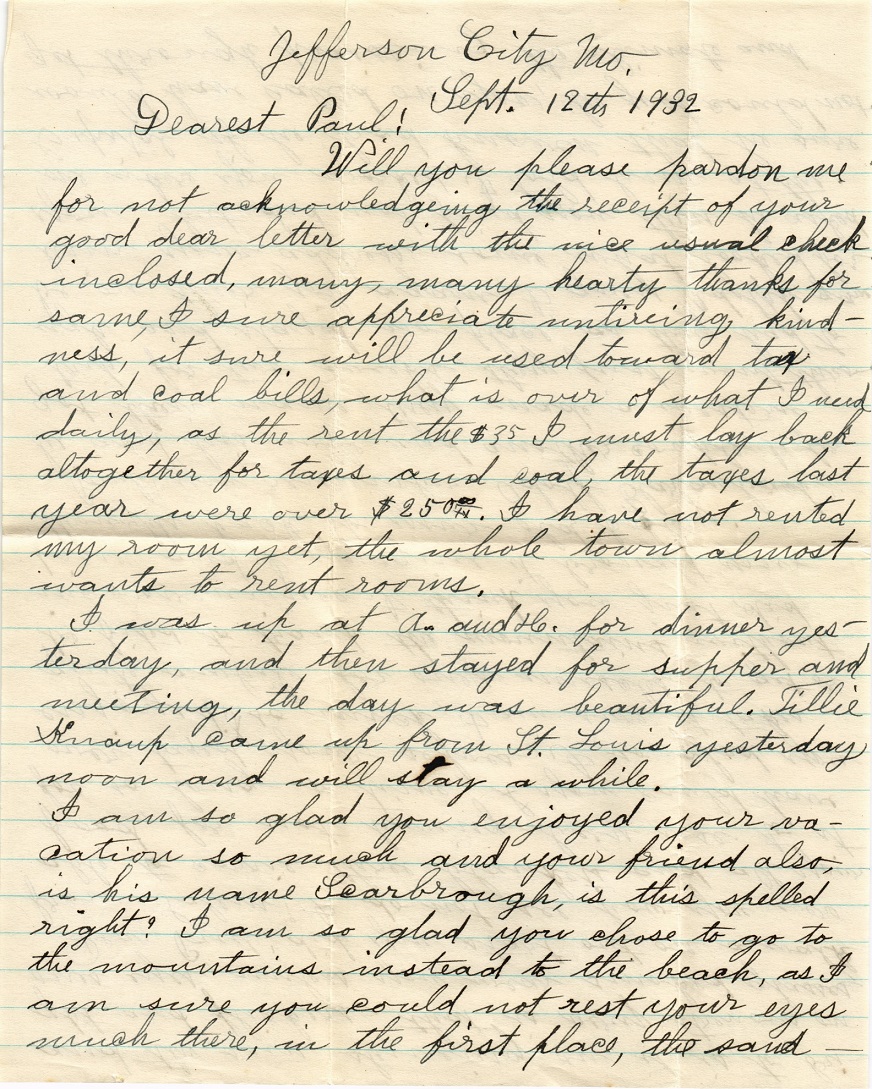 Jefferson City Mo.
Sept. 12th 1932
Dearest Paul!
Will you please pardon me
for not acknowledgeing the receipt of your
good dear letter with the nice usual check
inclosed, many, many hearty thanks for
same, I sure appreciate untireing kind-
ness, it sure will be used toward tax
and coal bills, what is over of what I need
daily, as the rent the $35 I must lay back
altogether for taxes and coal, the taxes last
year were over $250 00/xx. I have not rented
my room yet, the whole town almost
wants to rent rooms.
I was up at A. and H. for dinner yes-
terday, and then stayed for supper and
meeting, the day was beautiful. Tillie
Knaup came up from St. Louis yesterday
noon and will stay a while.
I am so glad you enjoyed your va-
cation so much and your friend also,
is his name Scarbrough, is this spelled
right? I am so glad you chose to go to
the mountains instead to the beach, as I
am sure you could not rest your eyes
much there, in the first place, the sand —